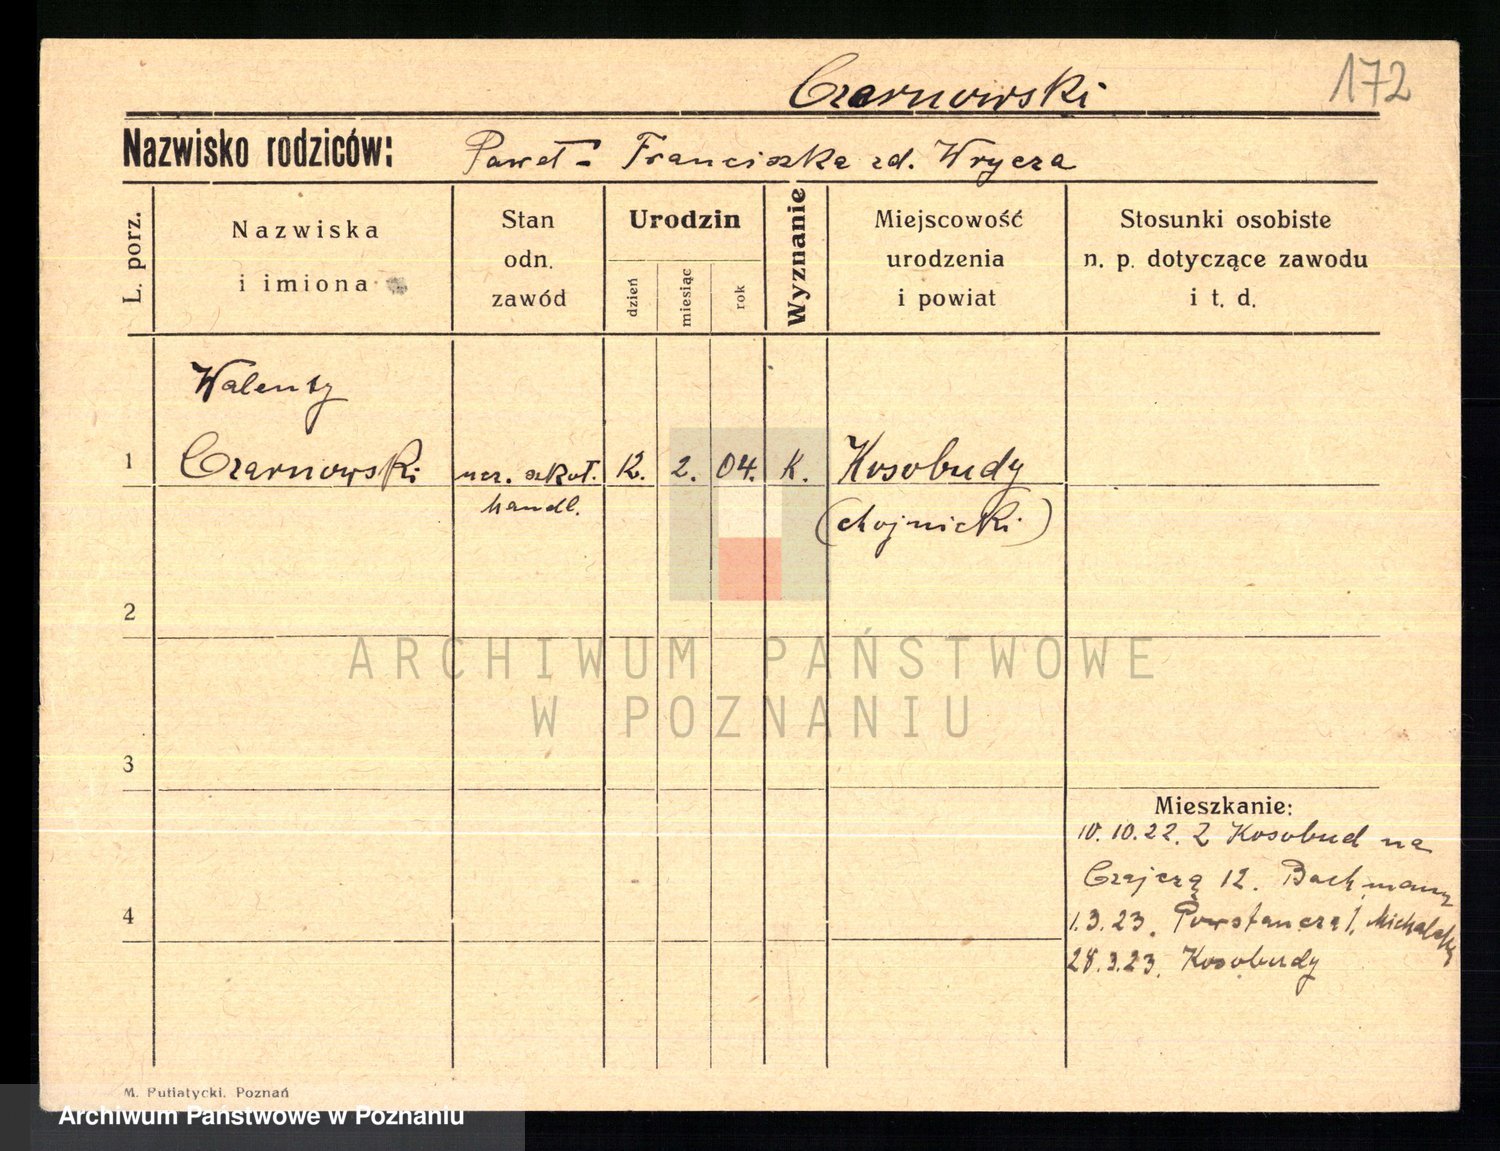 Czarnowski
172
Nazwisko rodziców: Paweł - Franciszka zd. Wrycza
L. porz.
Nazwiska
i imiona
Stan
odn.
zawód
Urodzin
dzień
miesiąc
rok
Wyznanie
Miejscowość
urodzenia
i powiat
Stosunki osobiste
n. p. dotyczące zawodu
i t. d.
Walenty
1 Czarnowski ucz. szkoł. 12. 2. 04. K. Kosobudy
handl. (chojnicki)
2
ARCHIWUM PAŃSTWOWE
W POZNANIU
3
Mieszkanie:
10.10.22. Z Kosobud na
Czajczą 12. Bachmann
4
1.3.23. Powstańczą 1.
28.3.23. Kosobudy
M. Putiatycki. Poznań
Archiwum Państwowe w Poznaniu